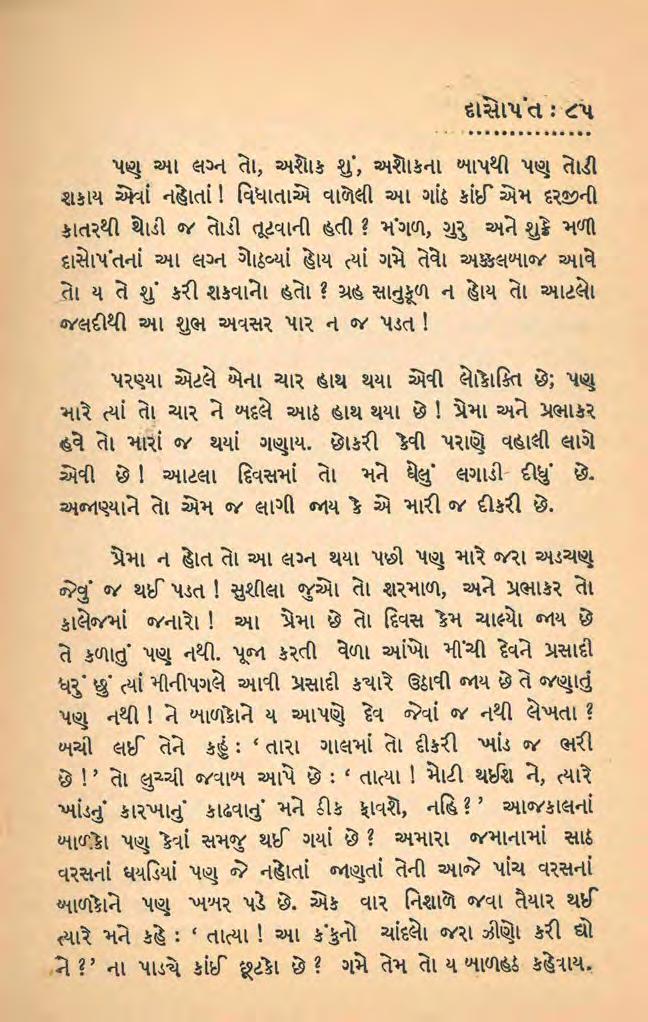 દાસોપંત : ૮૫
પણ આ લગ્ન તો, અશોક શું, અશોકના બાપથી પણ તોડી
શકાય એવાં નહોતાં ! વિધાતાએ વાળેલી આ ગાંઠ કાંઈ એમ દરજીની
કાતરથી થોડી જ તોડી તૂટવાની હતી ? મંગળ, ગુરુ અને શુક્રે મળી
દાસોપંતનાં આ લગ્ન ગોઠવ્યાં હોય ત્યાં ગમે તેવો અક્કલબાજ આવે
તો ય તે શું કરી શકવાનો હતો ? ગ્રહ સાનુકૂળ ન હોય તો આટલો
જલદીથી આ શુભ અવસર પાર ન જ પડત !
પરણ્યા એટલે બેના ચાર હાથ થયા એવી લોકોક્તિ છે; પણ
મારે ત્યાં તો ચાર ને બદલે આઠ હાથ થયા છે ! પ્રેમા અને પ્રભાકર
હવે તો મારાં જ થયાં ગણાય. છોકરી કેવી પરાણે વહાલી લાગે
એવી છે ! આટલા દિવસમાં તો મને ઘેલું લગાડી દીધું છે.
અજાણ્યાને તો એમ જ લાગી જાય કે એ મારી જ દીકરી છે.
પ્રેમા ન હોત તો આ લગ્ન થયા પછી પણ મારે જરા અડચણ
જેવું જ થઈ પડત ! સુશીલા જુઓ તો શરમાળ, અને પ્રભાકર તો
કાલેજમાં જનારો ! આ પ્રેમા છે તો દિવસ કેમ ચાલ્યો જાય છે
તે કળાતું પણ નથી. પૂજા કરતી વેળા આંખો મીંચી દેવને પ્રસાદી
ધરું છું ત્યાં મીનીપગલે આવી પ્રસાદી ક્યારે ઉઠાવી જાય છે તે જણાતું
પણ નથી ! ને બાળકોને ય આપણે દેવ જેવાં જ નથી લેખતા ?
બચી લઈ તેને કહું : ‘ તારા ગાલમાં તો દીકરી ખાંડ જ ભરી
છે !’ તો લુચ્ચી જવાબ આપે છે : ‘ તાત્યા ! મોટી થઈશ ને, ત્યારે
ખાંડનું કારખાનું કાઢવાનું મને ઠીક ફાવશે, નહિ ?’ આજકાલનાં
બાળકો પણ કેવાં સમજુ થઈ ગયાં છે ? અમારા જમાનામાં સાઠ
વરસનાં ઘયડિયાં પણ જે નહોતાં જાણતાં તેની આજે પાંચ વરસનાં
બાળકોને પણ ખબર પડે છે. એક વાર નિશાળે જવા તૈયાર થઈ
ત્યારે મને કહે : ‘ તાત્યા ! આ કંકુનો ચાંદલો જરા ઝીણો કરી દ્યો
ને ?’ ના પાડ્યે કાંઈ છૂટકો છે ? ગમે તેમ તો ય બાળહઠ કહેવાય.